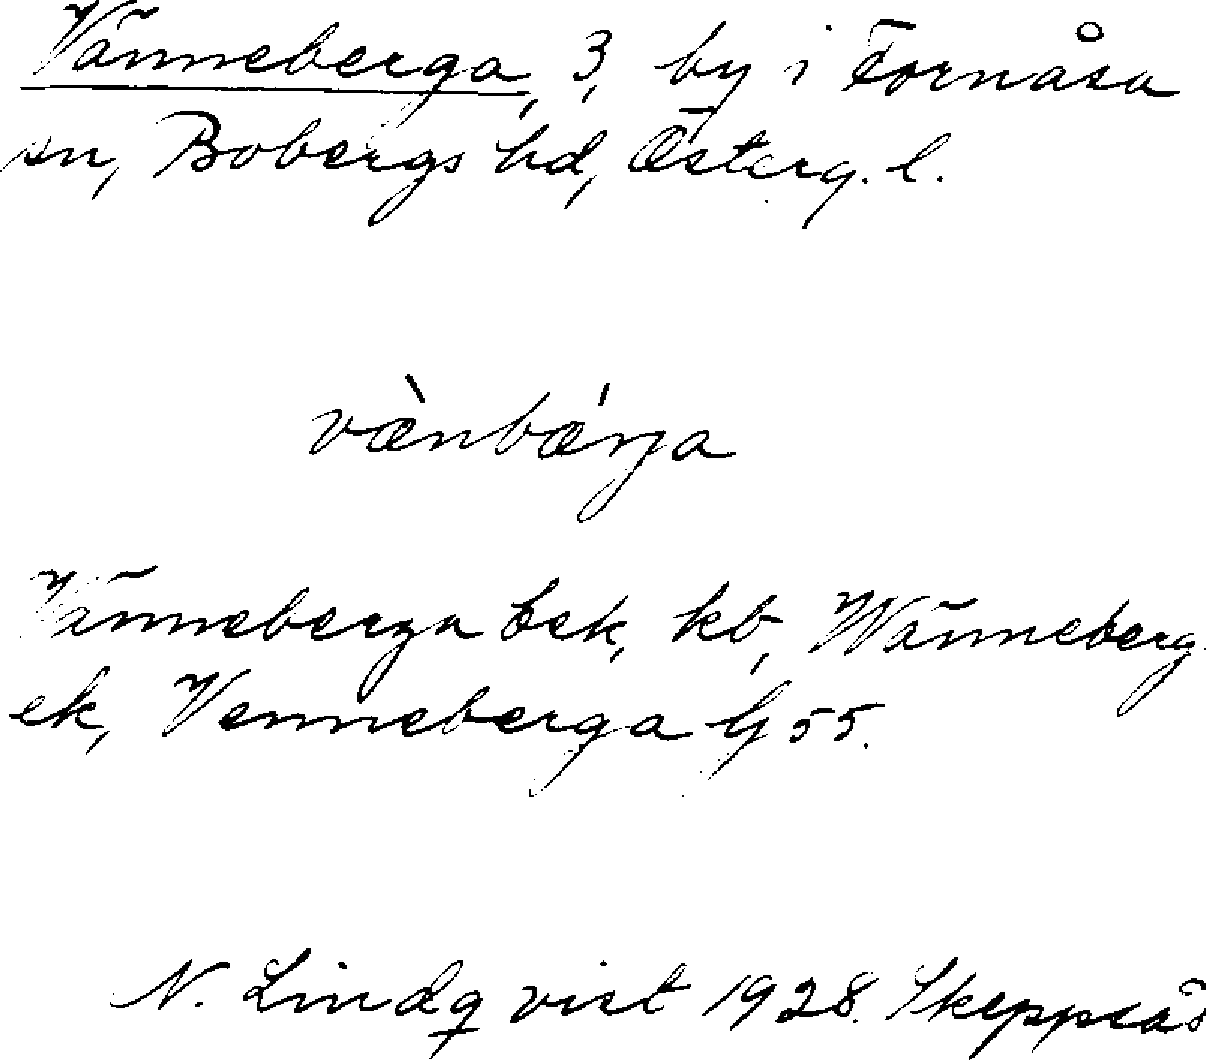 Vänneberga, 3, by i Fornåsa
sn, Bobergs hd, Österg. l.
væ̀nbǽrja
Vänneberga bek, kb, Wänneberg
ek, Venneberga G 55.
N. Lindqvist 1928. Skeppsås